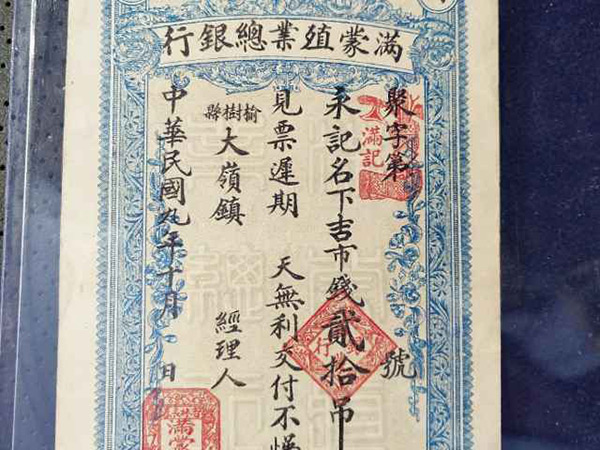 滿蒙殖業總銀行
聚字第 號
永記名下吉市錢貳拾吊
見票遲期 天無利交付不悞
榆樹縣
大嶺鎮 經理人
中華民國九年十月 日
滿記